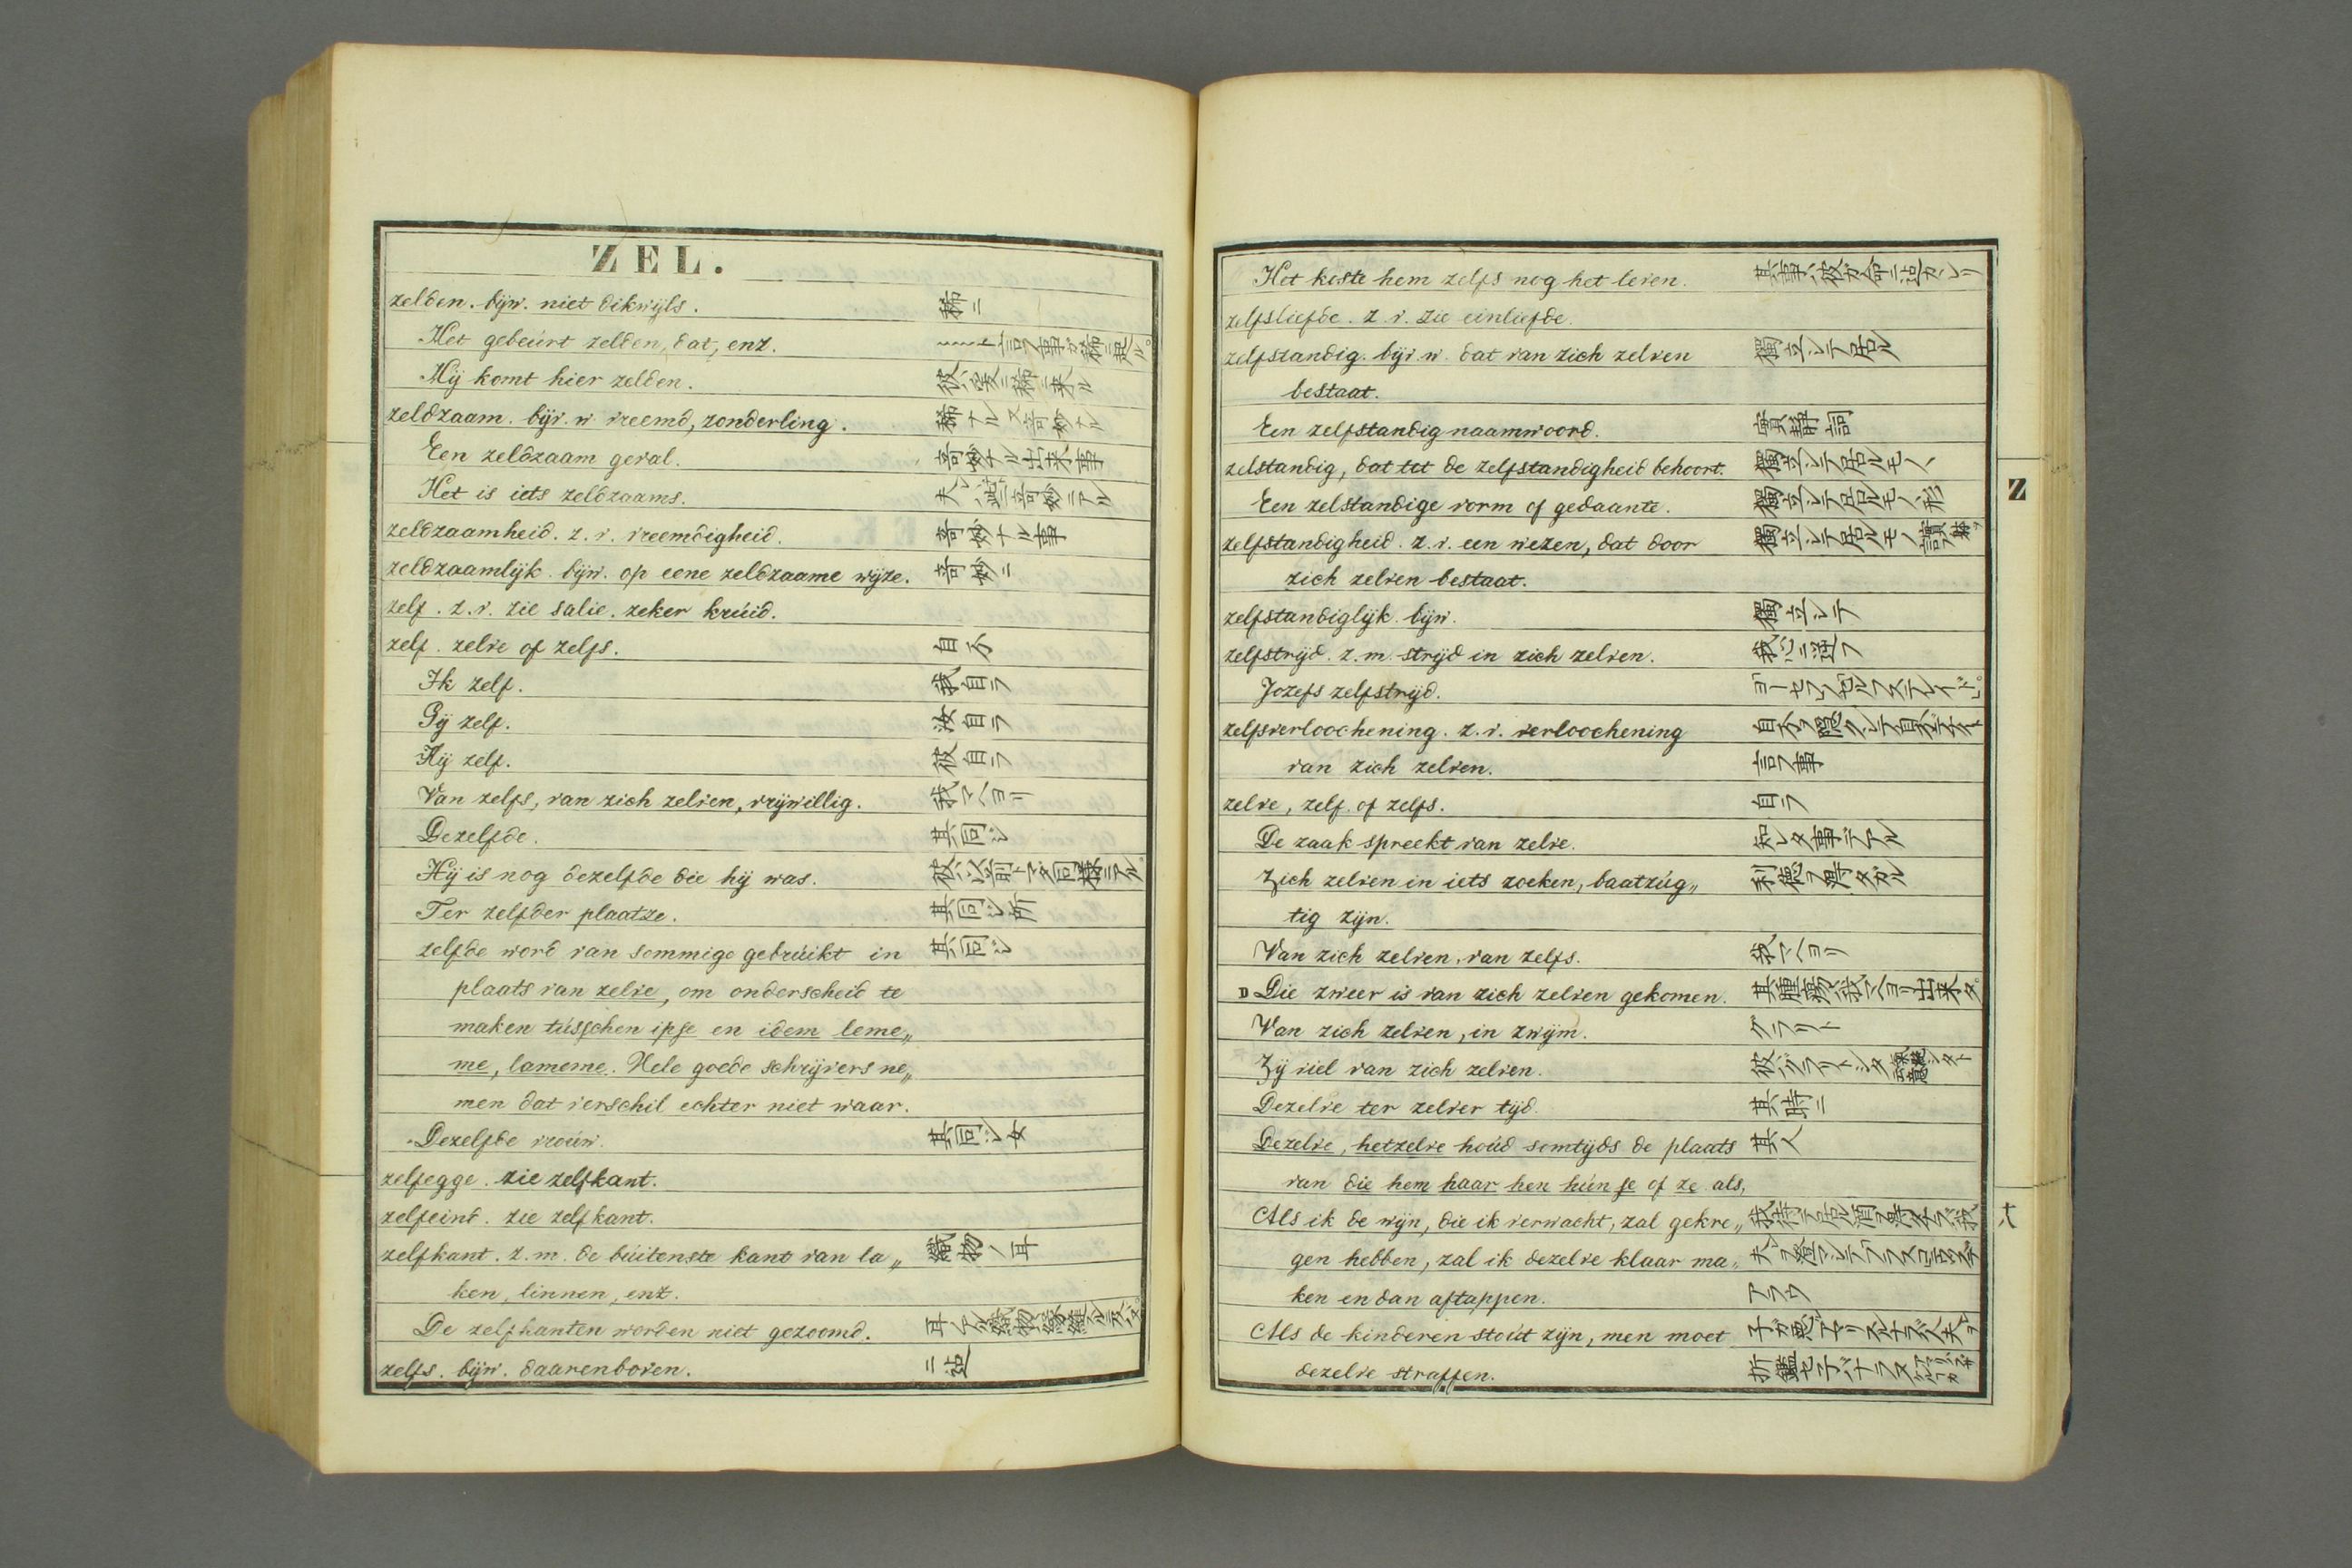 ZEL.
zelden. bijw. niet dikwijls. 稀ニ
Het gebeúrt zelden, dat, enz. ト言フ事ガ稀ニ起ル。
Hij komt hier zelden. 彼ハ爰ニ稀ニ来ル
zeldzaam. bijv. w vreemd, zonderling. 稀ナル又奇妙ナル
Een zeldzaam geval. 奇妙ナル出来事
Het is iets zeldzaams. 夫レハ些ト奇妙ニアル
zeldzaamheid. z. v. vreemdigheid. 奇妙ナル事
zeldzaamlijk. bijw. op eene zeldzaame wijze. 奇妙ニ
zelf. z. v. zie salie. zeker krúid.
zelf. zelve of zelfs. 自分
Ik zelf. 我自ラ
Gij zelf. 汝自ラ
Hij zelf. 彼自ラ
Van zelfs, van zich zelven, vrijwillig. 我マヽヨリ
Dezelfde. 其同シ
Hij is nog dezelfde die hij was. 彼ハ以前トマダ同様ニアル。
Ter zelfder plaatze. 其同シ所
zelfde word van sommige gebrúikt in 其同シ
plaats van zelve, om onderscheid te
maken tússchen ipse en idem leme„
me, lameme. Vele goede schrijvers ne„
men dat verschil echter niet waar.
Dezelfde vroúw. 其同シ女
zelfegge. zie zelfkant.
zelfeind. zie zelfkant.
zelfkant. z. m. de búitenste kant van la„ 織物ノ耳
ken, linnen, enz.
De zelfkanten worden niet gezoomd. 耳
zelfs. bijw. daarenboven. ニ迠
Het koste hem zelfs nog het leven. 其事ハ彼ガ命ニ迠カヽレリ
zelfsliefde. z. v. zie einliefde.
zelfstandig. bijv. w. dat van zich zelven 獨立シテ居ル
bestaat.
Een zelfstandig naamwoord. 實静詞
zelstandig, dat tot de zelfstandigheid behoort. 獨立シテ居ルモノヽ
Een zelstandige vorm of gedaante. 獨立シテ居ルモノヽ形
zelfstandigheid. z. v. een wezen, dat door 獨立シテ居ルモノ
zich zelven bestaat.
zelfstandiglijk. bijw. 獨立シテ
zelfstrijd. z. m. strijd in zich zelven. 我心ニ逆フ
Jozefs zelfstrijd.
zelfsverloochening. z. v. verloochening 自分ヲ隠クシテ
van zich zelven. 言フ事
zelve, zelf. of zelfs. 自ラ
De zaak spreekt van zelve. 知レタ事デアル
Zich zelven in iets zoeken, baatzúg„ 利徳ヲ得タガル
tig zijn.
Van zich zelven, van zelfs. 我マヽヨリ
D Die zweer is van zich zelven gekomen. 其腫瘍ハ我マヽヨリ出来タ。
Van zich zelven, in zwijm. グラリト
Zij viel van zich zelven. 彼ハグラリトシタ
Dezelve ter zelver tijd. 其時ニ
Dezelve, hetzelve hoúd somtijds de plaats 其人
van die hem haar hen hún se of ze als,
Als ik de wijn, die ik verwacht, zal gekre„
gen hebben, zal ik dezelve klaar ma„
ken en dan aftappen. アラウ
Als de kinderen stoút zijn, men moet
dezelve straffen. 折檻セ子バナラヌ
Z
十八